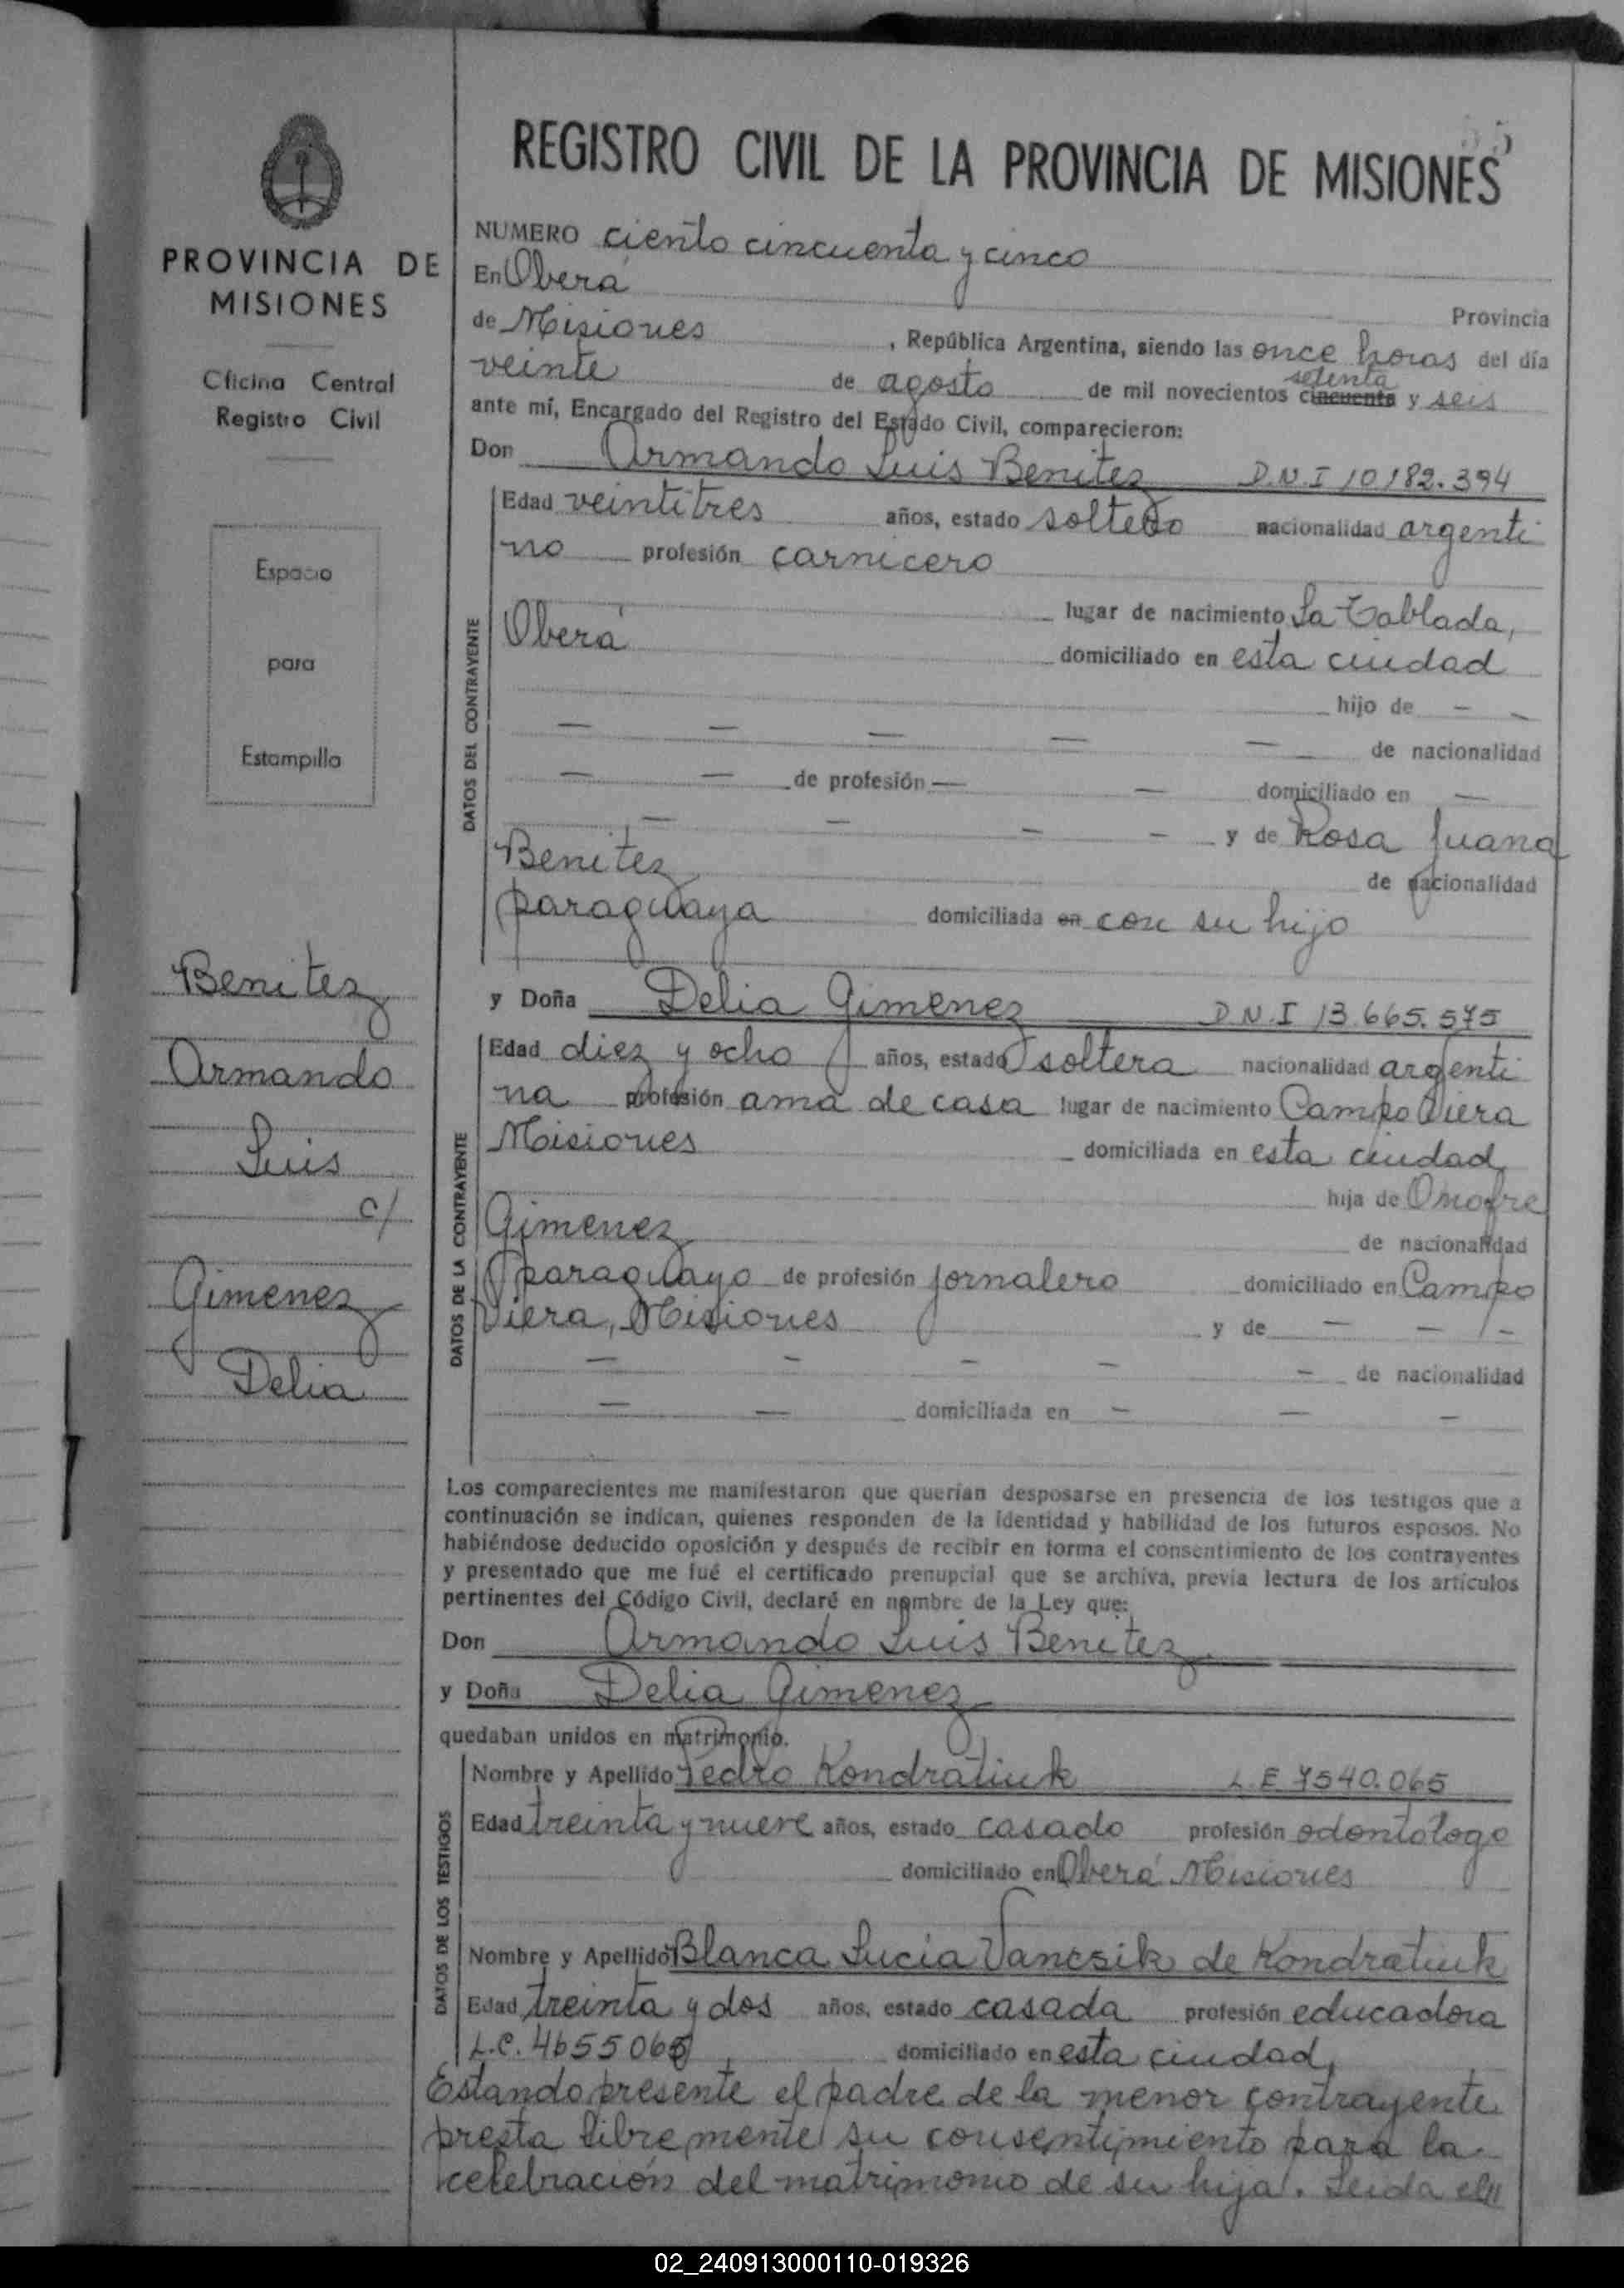 55
REGISTRO CIVIL DE LA PROVINCIA DE MISIONES
PROVINCIA DE
MISIONES
Oficina Central
Registro Civil
Espacio
para
Estampilla
Benitez
Armando
Luis
c/
Gimenez
Delia
NUMERO ciento cincuenta y cinco
En Oberá
Provincia
de Misiones, República Argentina, siendo las once horas del día
veinte de agosto de mil novecientos cincuenta setenta y seis
ante mí, Encargado del Registro del Estado Civil, comparecieron:
Don Armando Luis Benitez D.N.I 10182.394
DATOS DEL CONTRAYENTE
Edad veintitres años, estado soltero nacionalidad argenti
no profesión carnicero
lugar de nacimiento La Tablada,
Oberá domiciliado en esta ciudad
hijo de - -
- - - - - de nacionalidad
- - de profesión - - domiciliado en -
- - - - y de Rosa Juana
Benitez de nacionalidad
paraguaya domiciliada en con su hijo
y Doña Delia Gimenez D.N.I 13.665.575
DATOS DE LA CONTRAYENTE
Edad diez y ocho años, estado soltera nacionalidad argenti
na profesión ama de casa lugar de nacimiento Campo Viera
Misiones domiciliada en esta ciudad
hija de Onofre
Gimenez de nacionalidad
paraguayo de profesión jornalero domiciliado en Campo
Viera, Misiones y de - - -
- - - - - de nacionalidad
- - domiciliada en - - -
Los comparecientes me manifestaron que querían desposarse en presencia de los testigos que a
continuación se indican, quienes responden de la identidad y habilidad de los futuros esposos. No
habiéndose deducido oposición y después de recibir en forma el consentimiento de los contrayentes
y presentado que me fué el certificado prenupcial que se archiva, previa lectura de los artículos
pertinentes del Código Civil, declaré en nombre de la Ley que:
Don Armando Luis Benitez
y Doña Delia Gimenez
quedaban unidos en matrimonio.
DATOS DE LOS TESTIGOS
Nombre y Apellido Pedro Kondratiuk L.E 7540.065
Edad treinta y nueve años, estado casado profesión odontólogo
domiciliado en Oberá Misiones
Nombre y Apellido Blanca Lucia Vancsik de Kondratiuk
Edad treinta y dos años, estado casada profesión educadora
L.C. 4655065 domiciliado en esta ciudad,
Estando presente el padre de la menor contrayente
presta libremente su consentimiento para la
celebración del matrimonio de su hija. Leida el//
02_240913000110-019326